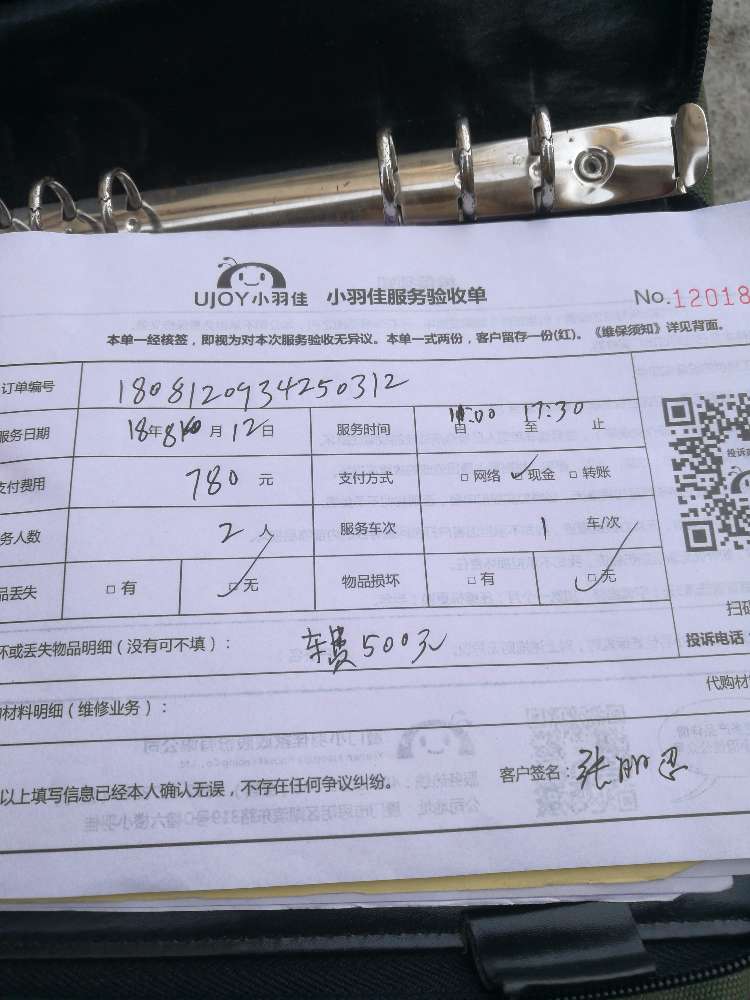 UJOY小羽佳 小羽佳服务验收单 No.12018
本单一经核签，即视为对本次服务验收无异议。本单一式两份，客户留存一份(红)。《维保须知》详见背面。
订单编号 1808120934250312
服务日期 18年8月12日 服务时间 自11:00至17:30止
支付费用 780元 支付方式 □网络 ☑现金 □转账
务人数 2人 服务车次 1车/次
品丢失 □有 ☑无 物品损坏 □有 ☑无
坏或丢失物品明细（没有可不填）： 车费500元
扫码
投诉电话
材料明细（维修业务）： 代购材
以上填写信息已经本人确认无误，不存在任何争议纠纷。 客户签名：张